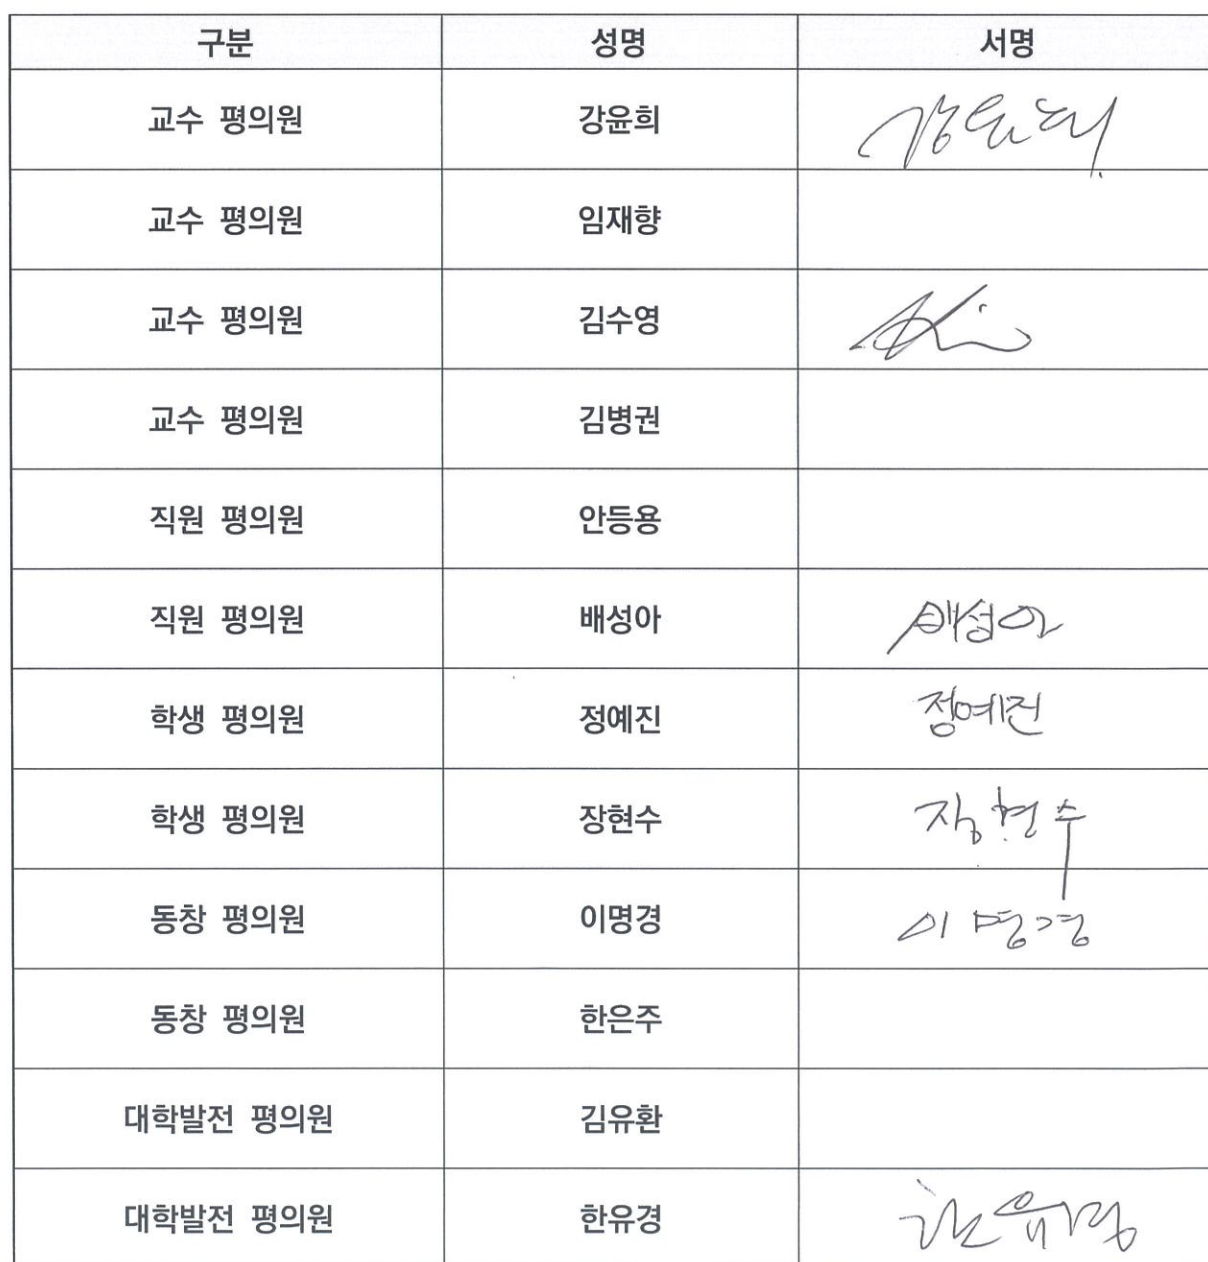 구분 성명 서명
교수 평의원 강윤희 강윤희
교수 평의원 임재향
교수 평의원 김수영 Kim
교수 평의원 김병권
직원 평의원 안등용
직원 평의원 배성아 배성아
학생 평의원 정예진 정예진
학생 평의원 장현수 장현수
동창 평의원 이명경 이명경
동창 평의원 한은주
대학발전 평의원 김유환
대학발전 평의원 한유경 한유경